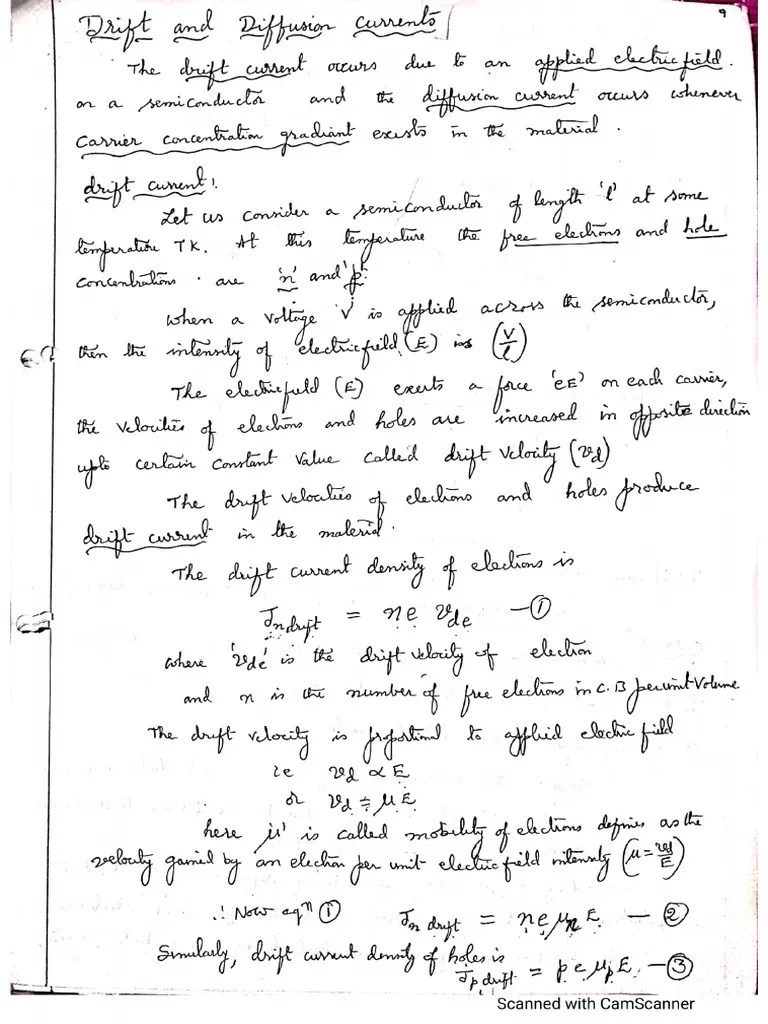 9
Drift and Diffusion currents
The drift current occurs due to an applied electric field.
on a semiconductor and the diffusion current occurs whenever
carrier concentration gradiant exists in the material.
drift current:
Let us consider a semiconductor of length 'l' at some
temperature TK. At this temperature the free electrons and hole
concentrations are 'n' and 'p'.
When a voltage 'V' is applied across the semiconductor,
then the intensity of electric field (E) is (V/l)
The electric field (E) exerts a force 'eE' on each carrier,
the velocities of electrons and holes are increased in opposite direction
upto certain constant value called drift velocity (vd)
The drift velocities of electrons and holes produce
drift current in the material.
The drift current density of electrons is
Jn drift = ne vde — ①
where 'vde' is the drift velocity of electron
and n is the number of free electrons in C.B per unit volume
The drift velocity is proportional to applied electric field
ie vd ∝ E
or vd = μE
here 'μ' is called mobility of electrons defines as the
velocity gained by an electron per unit electric field intensity (μ = vd/E)
∴ Now eqn ① Jn drift = neμnE — ②
Similarly, drift current density of holes is
Jp drift = peμpE — ③
Scanned with CamScanner